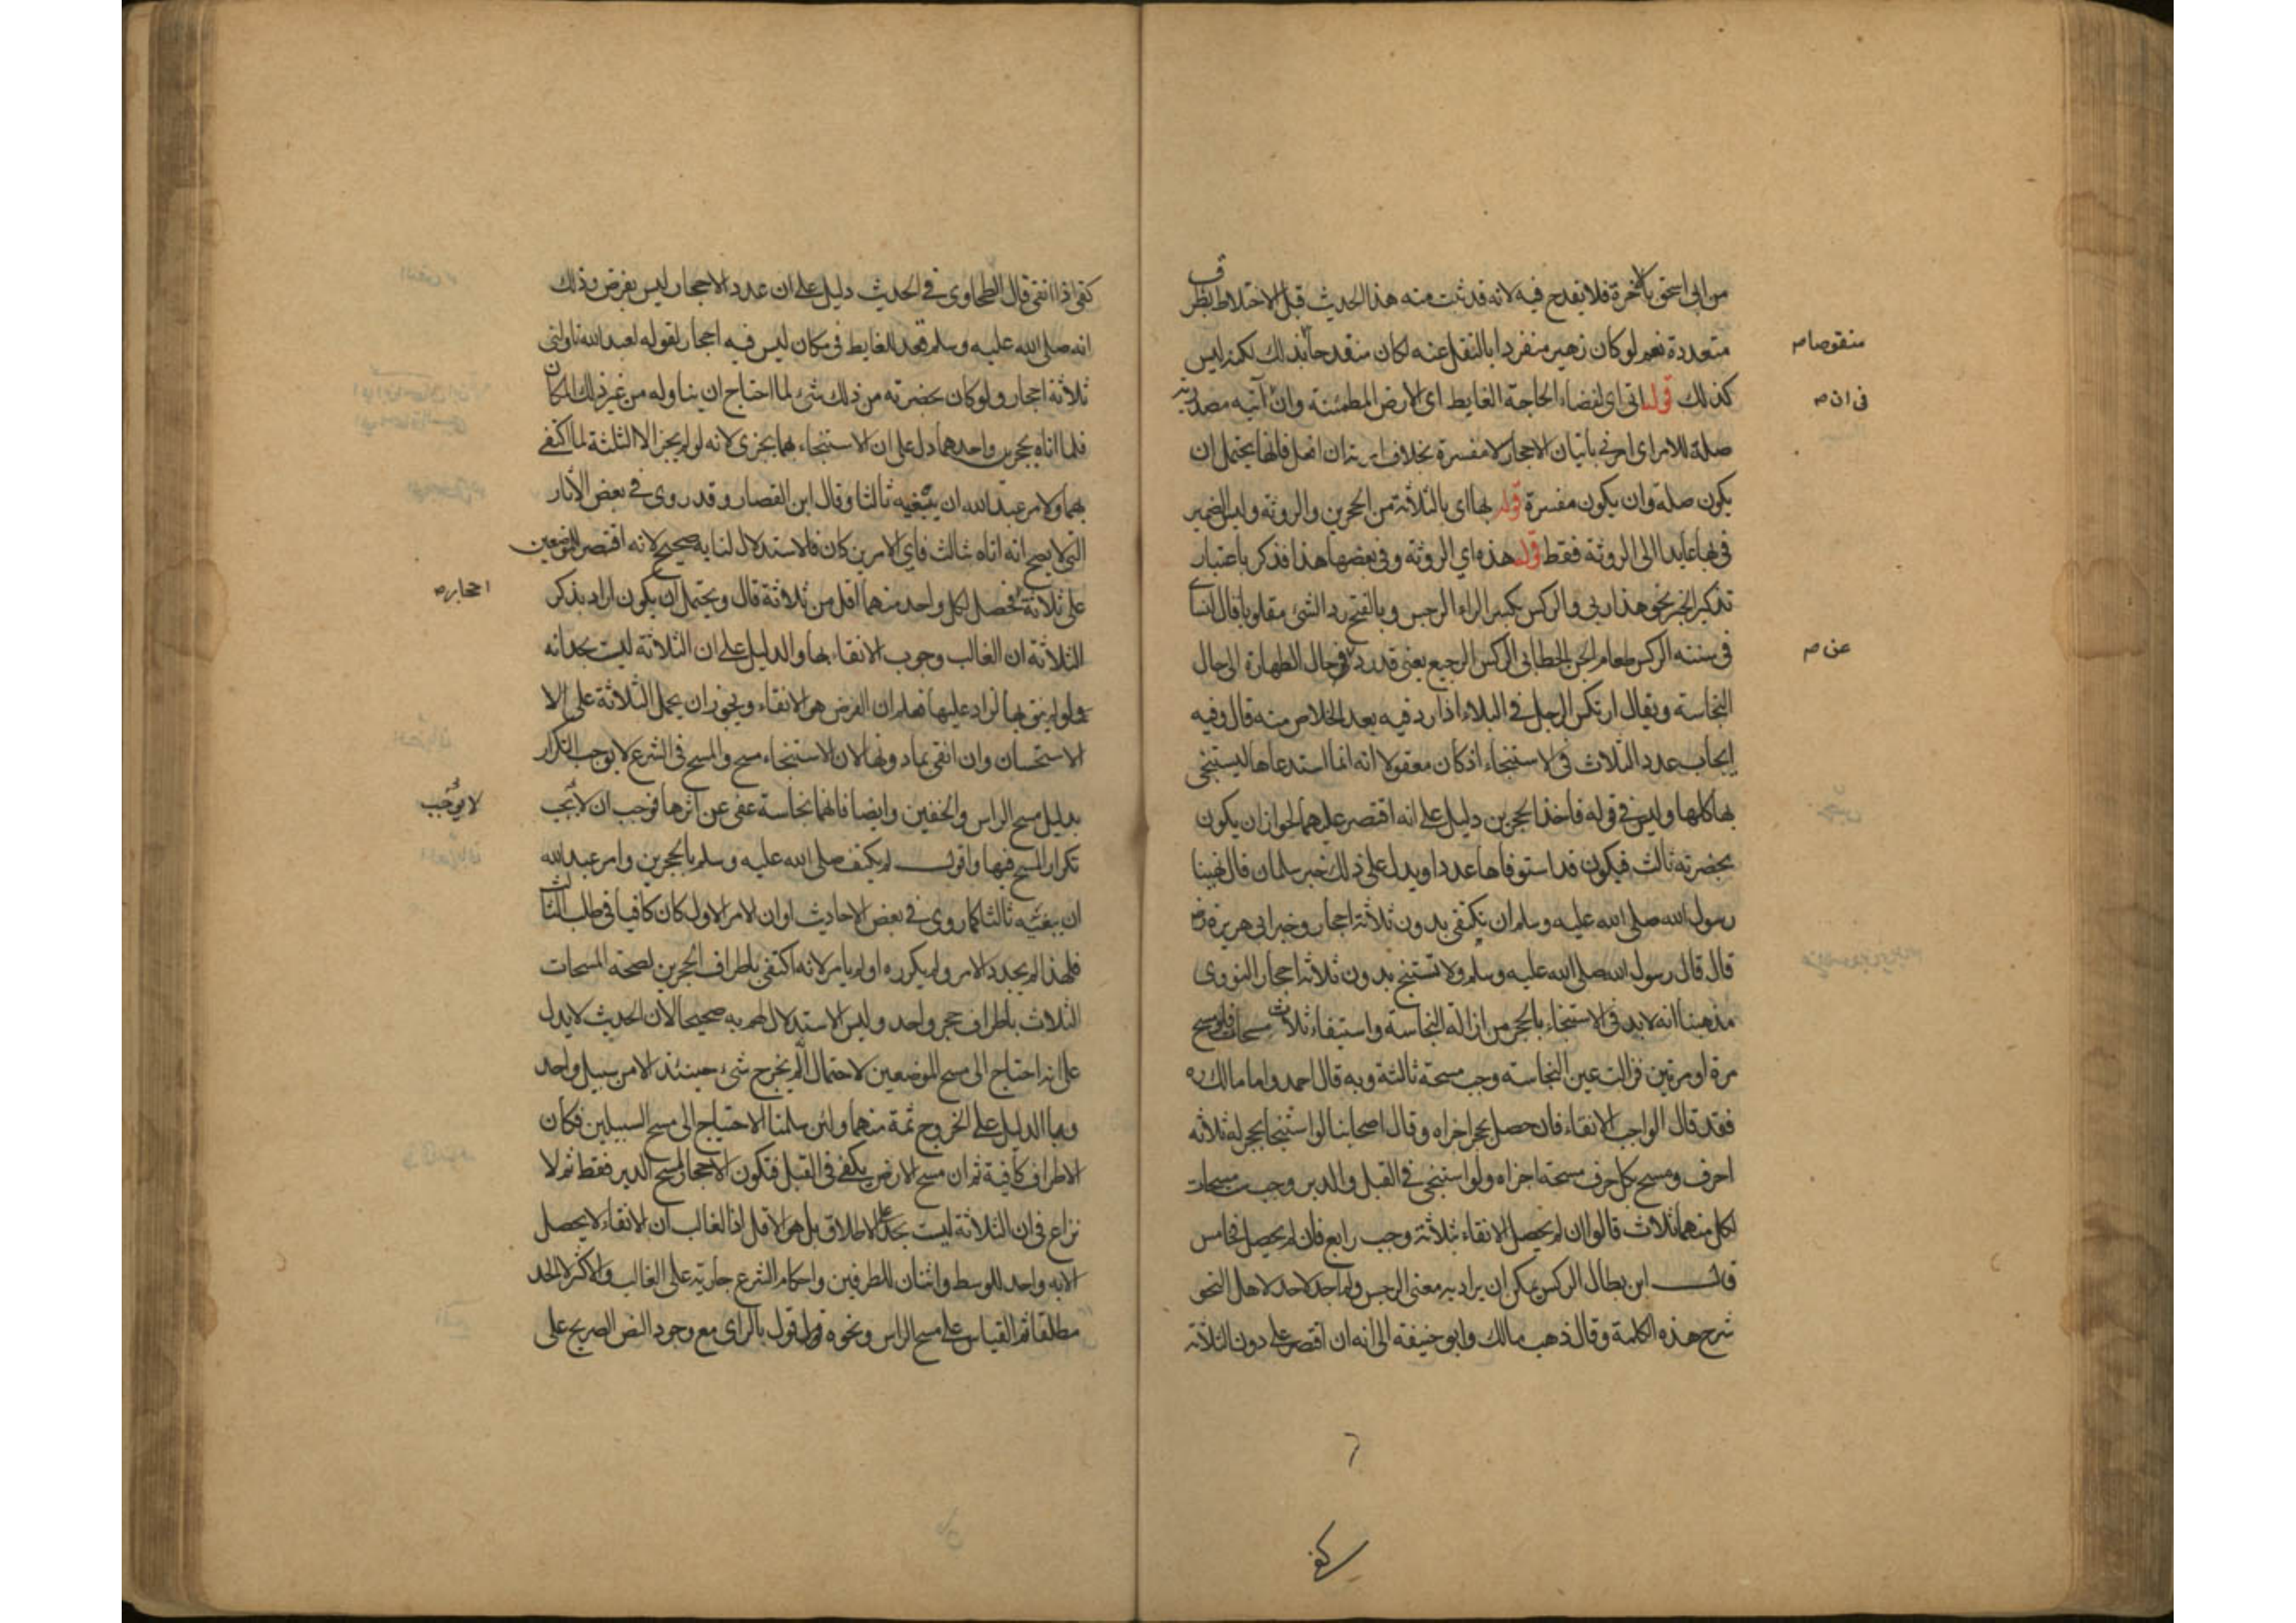 من ابي اسحق بآخرة فلا يقدح فيه لانه قد ثبت منه هذا الحديث قبل الاختلاط بطرق
متعددة نعم لو كان زهير منفردا بالنقل عنه لكان منقدحا بذلك لكنه ليس
منقوصا صح
كذلك قوله اتى اي لقضاء الحاجة الغايط اي الارض المطمئنة وان آتيه مصدرية
في ان صح
صلة للامر اي امرني باتيان الاحجار لا مفسرة بخلاف امرته ان افعل فانها يحتمل ان
يكون صلة وان يكون مفسرة قوله بها اي بالثلاثة من الحجرين والروثة وليس الضمير
في بها عايدا الى الروثة فقط قوله هذه اي الروثة وفي بعضها هذا فذكر باعتبار
تذكير الخبر نحو هذا ربي والركس بكسر الراء الرجس وبالفتح رد الشئ مقلوبا قال النسائي
في سننه الركس طعام الجن الخطابي الركس الرجيع يعني قد رد عن حال الطهارة الى حال
عن صح
النجاسة ويقال ارتكس الرجل في البلاء اذا رد فيه بعد الخلاص منه قال وفيه
ايجاب عدد الثلاث في الاستنجاء اذ كان معقولا انه انما استدعاها ليستنجي
بها كلها وليس في قوله فاخذ الحجرين دليل على انه اقتصر عليهما لجواز ان يكون
بحضرته ثالث فيكون قد استوفاها عددا ويدل على ذلك خبر سلمان قال نهينا
رسول الله صلى الله عليه وسلم ان نكتفي بدون ثلاثة احجار وخبر ابي هريرة رض
قال قال رسول الله صلى الله عليه وسلم ولا تستنج بدون ثلاثة احجار النووي
مذهبنا انه لا بد في الاستنجاء بالحجر من ازالة النجاسة واستيفاء ثلاث مسحات فلو مسح
مرة او مرتين فزالت عين النجاسة وجب مسحة ثالثة وبه قال احمد واما مالك ره
فقد قال الواجب الانقاء فان حصل بحجر اجزاه وقال اصحابنا لو استنجا بحجر له ثلاثة
احرف ومسح بكل حرف مسحة اجزاه ولو استنجى في القبل والدبر وجب مسحات
لكل منهما ثلاث قالوا ان لم يحصل الانقاء بثلاثة وجب رابع فان لم يحصل فخامس
قال ابن بطال الركس يمكن ان يراد به معنى الرجس ولم اجد لاحد لاهل النحو
شرح هذه الكلمة وقال ذهب مالك وابو حنيفة الى انه ان اقتصر على دون الثلاثة
كفى
كفى اذا انقى قال الطحاوي في الحديث دليل على ان عدد الاحجار ليس بفرض وذلك
انه صلى الله عليه وسلم قعد للغايط في مكان ليس فيه احجار لقوله لعبد الله ناولني
ثلاثة احجار ولو كان بحضرته من ذلك شئ لما احتاج ان يناوله من غير ذلك المكان
فلما اتاه بحجرين واحدهما دل على ان الاستنجاء بهما يجزي لانه لو لم يجز الا الثلثة لما اكتفى
بهما ولامر عبد الله ان يبغيه ثالثا وقال ابن القصار وقد روى في بعض الآثار
التي لا يصح انه اتاه بثالث فاي الامرين كان فالاستدلال لنا به صحيح لانه اقتصر للموضعين
على ثلاثة فحصل لكل واحد منهما اقل من ثلاثة قال ويحتمل ان يكون اراد بذكر
احجار صح
الثلاثة ان الغالب وجوب الانقاء بها والدليل على ان الثلاثة ليست بحد انه
ولو لم ينق بها لزاد عليها فعلم ان الفرض هو الانقاء ويجوز ان يحمل الثلاثة على الا
الاستحسان وان انقى بما دونها لان الاستنجاء مسح والمسح في الشرع لا يوجب التكرار
بدليل مسح الراس والخفين وايضا فانها نجاسة عفي عن اثرها فوجب ان لا يجب
لا يوجب
تكرار المسح فيها واقول لم يكتف صلى الله عليه وسلم بالحجرين وامر عبد الله
ان يبغيه ثالثا كما روى في بعض الاحاديث او ان الامر الاول كان كافيا في طلب الثالث
فلهذا لم يجدد الامر ولم يكرره او لم يامر لانه اكتفى باطراف الحجرين لصحة المسحات
الثلاث باطراف حجر واحد وليس الاستدلال لهم به صحيحا لان الحديث لا يدل
على انه احتاج الى مسح الموضعين لاحتمال الم يخرج شئ حينئذ الا من سبيل واحد
وما الدليل على الخروج ثمة منهما ولئن سلمنا الاحتياج الى مسح السبيلين فكان
الاطراف كافية ثم ان مسح الارض يكفي في القبل فتكون الاحجار لمسح الدبر فقط ثم لا
نزاع في ان الثلاثة ليست بحد على الاطلاق بل هو الاقل اذ الغالب ان الانقاء لا يحصل
الا به واحد للوسط واثنان للطرفين واحكام الشرع جارية على الغالب والاكثر لا الحد
مطلقا ثم القياس على مسح الراس ونحوه قول بالراي مع وجود النص الصريح على